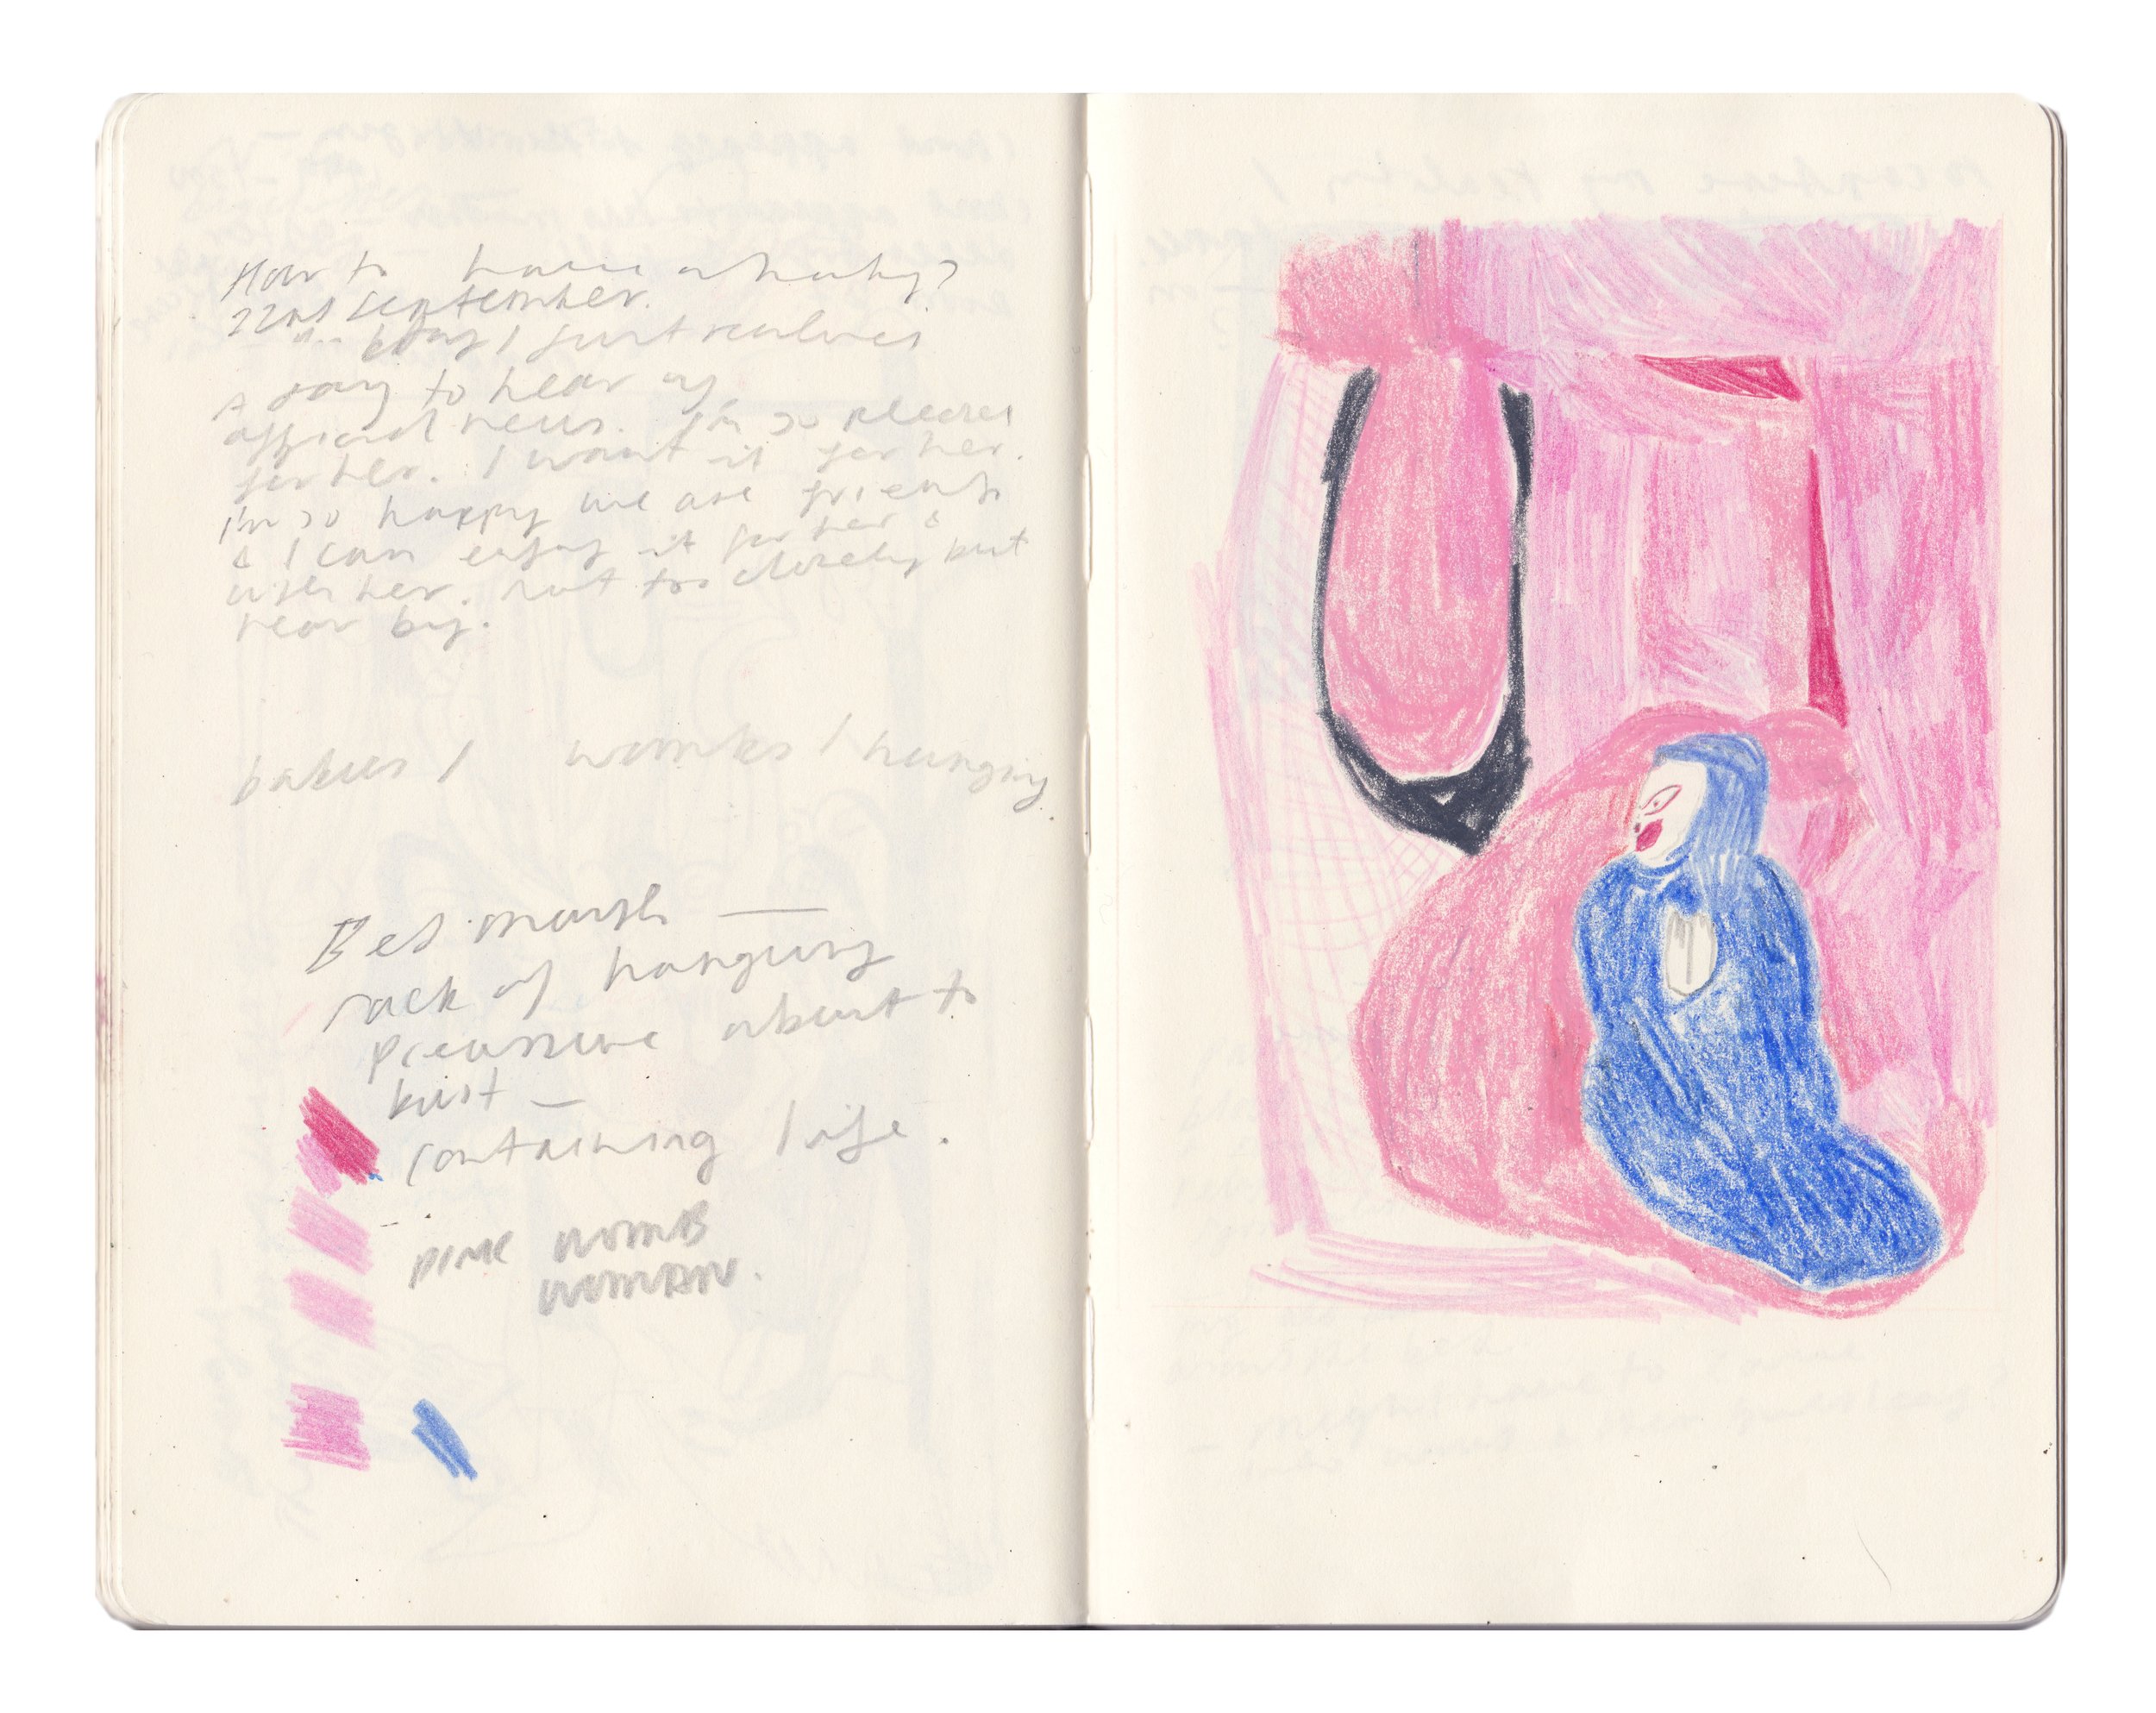 How to have a baby?
22nd September.
today I just realised
a day to hear of
official news. I'm so pleased
for her. I want it for her.
I'm so happy we are friends
& I can enjoy it for her &
with her. not too closely but
near by.
babies / wombs / hanging
Bed mouth —
sack of hanging
pressure about to
bust —
containing life.
PINK WOMB
WOMAN.